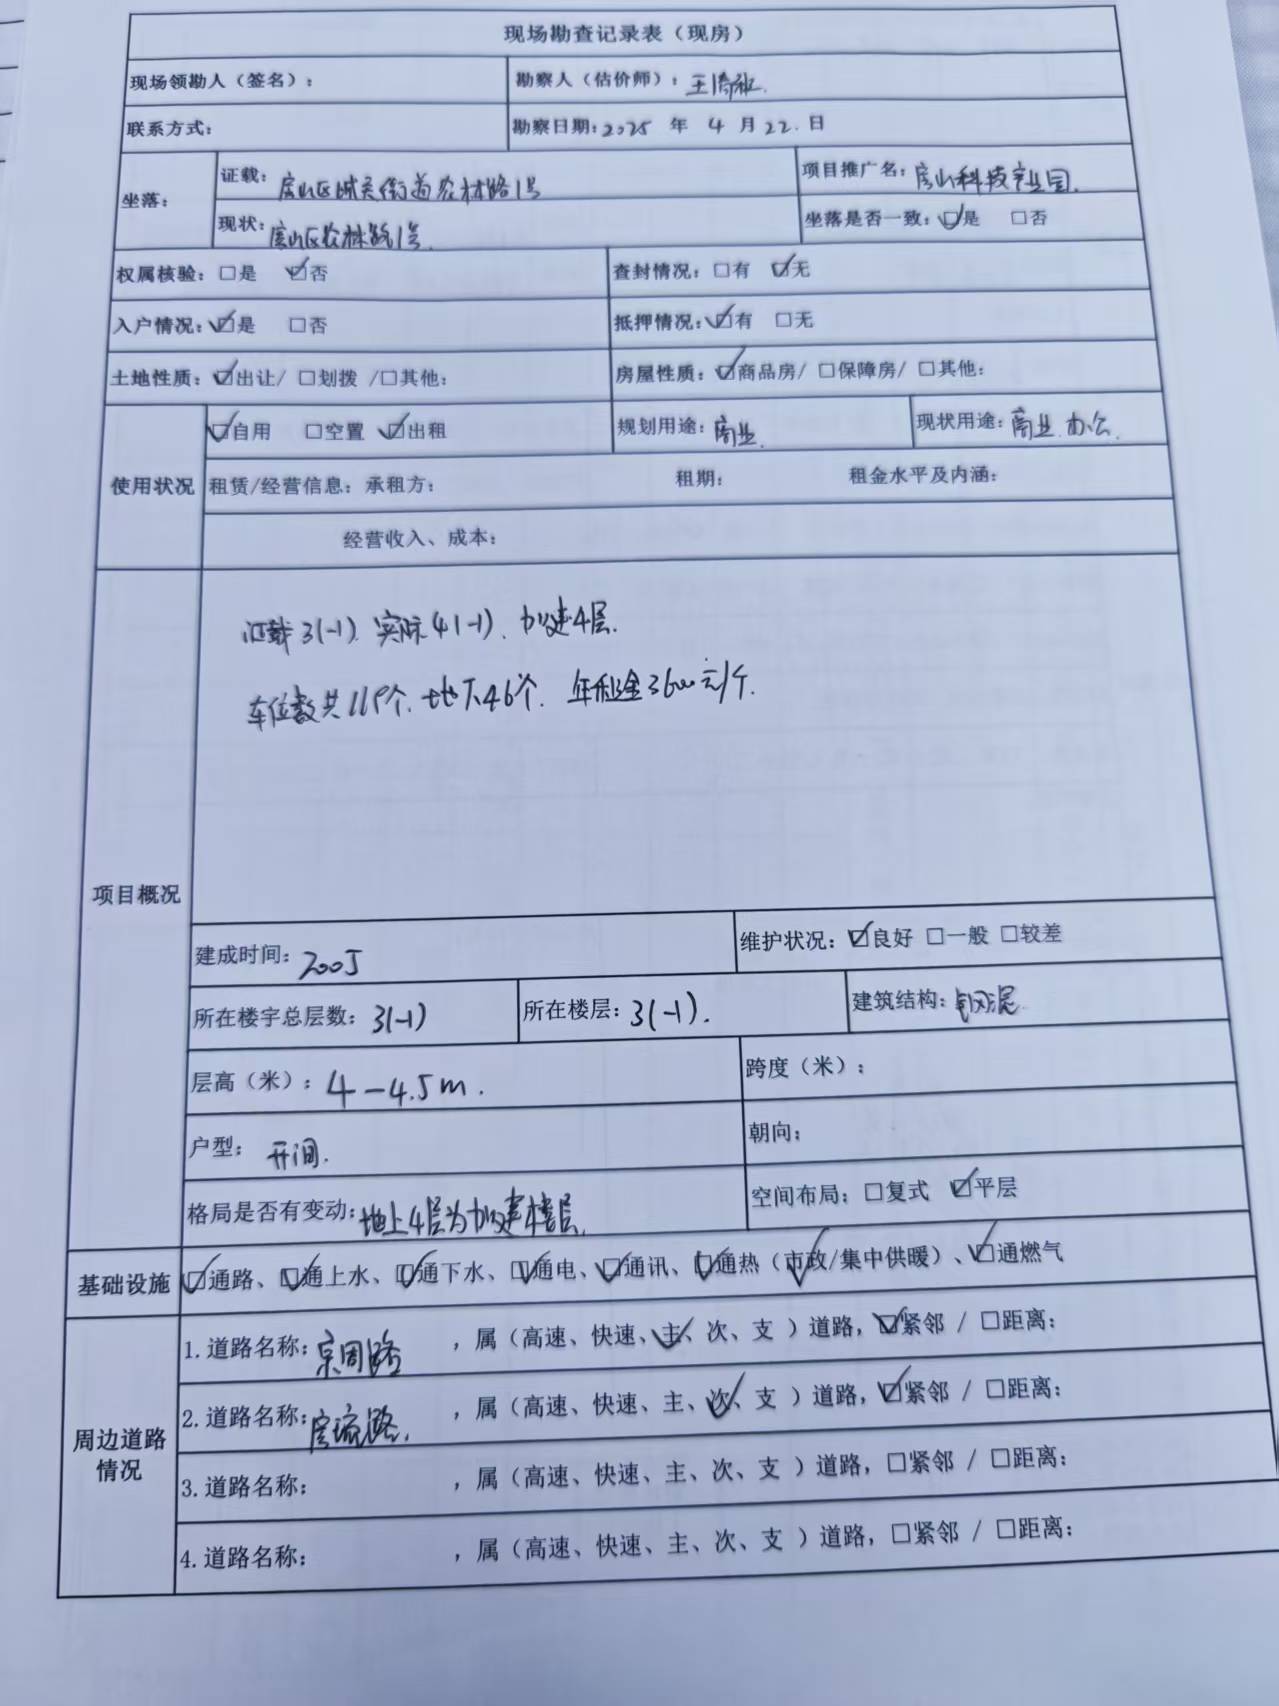 现场勘查记录表（现房）
现场领勘人（签名）： 勘察人（估价师）：王
联系方式： 勘察日期：2025 年 4 月 22. 日
坐落： 证载：房山区城关街道农林路1号 项目推广名：房山科技产业园.
现状：房山区农林路1号. 坐落是否一致：☑是 □否
权属核验：□是 ☑否 查封情况：□有 ☑无
入户情况：☑是 □否 抵押情况：☑有 □无
土地性质：☑出让/ □划拨 /□其他： 房屋性质：☑商品房/ □保障房/ □其他：
使用状况 ☑自用 □空置 ☑出租 规划用途：商业. 现状用途：商业.办公.
租赁/经营信息：承租方： 租期： 租金水平及内涵：
经营收入、成本：
项目概况
证载3(-1). 实际4(-1). 加建4层.
车位数共119个. 地下46个. 年租金3600元/个.
建成时间：2005 维护状况：☑良好 □一般 □较差
所在楼宇总层数：3(-1) 所在楼层：3(-1). 建筑结构：钢混
层高（米）：4-4.5m. 跨度（米）：
户型：开间. 朝向：
格局是否有变动：地上4层为加建楼层. 空间布局：□复式 ☑平层
基础设施 ☑通路、☑通上水、☑通下水、☑通电、☑通讯、☑通热（市政/集中供暖）、☑通燃气
周边道路情况
1.道路名称：京周路 ，属（高速、快速、主、次、支 ）道路，☑紧邻 / □距离：
2.道路名称：房琉路. ，属（高速、快速、主、次、支 ）道路，☑紧邻 / □距离：
3.道路名称： ，属（高速、快速、主、次、支 ）道路，□紧邻 / □距离：
4.道路名称： ，属（高速、快速、主、次、支 ）道路，□紧邻 / □距离：